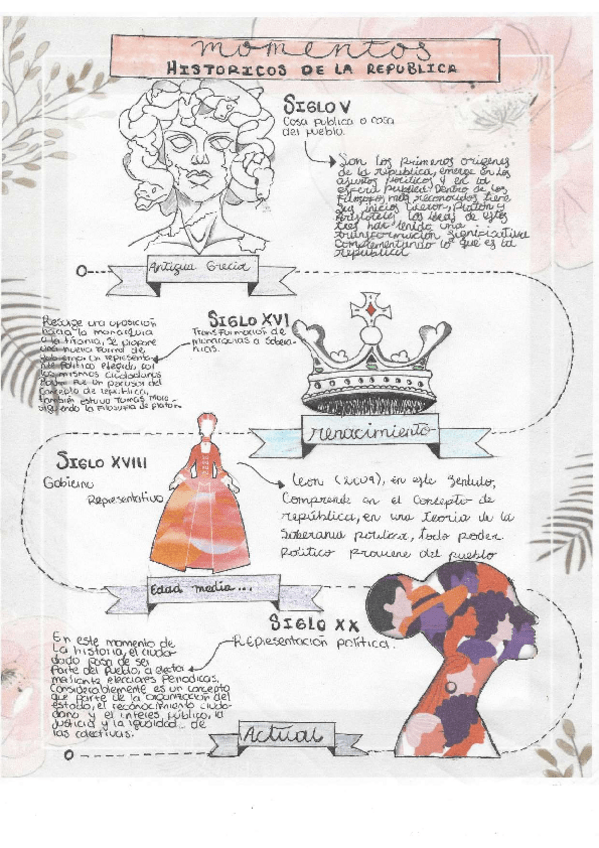 momentos
HISTORICOS DE LA REPUBLICA
SIGLO V
Cosa publica o cosa
del pueblo.
Son los primeros origenes
de la republica, emerge en los
asuntos politicos y en la
esfera publica. Dentro de los
Filosofos mas reconocidos tiene
sus inicios fueron, Platon y
Aristoteles las ideas de estos
tres han tenido una
transformacion significativa
Complementando lo que es la
republica
Antigua Grecia
SIGLO XVI
Transformacion de
monarquias a Sobera-
nias.
una oposicion
hacia la monarquia
o la tirania, se propone
una nueva forma de
gobierno un represent
politico elegido, por
los mismos ciudadanos
fue un precursor del
concepto de republica,
tambien estuvo Tomas Moro
siguiendo la filosofia de platon.
renacimiento
SIGLO XVIII
Gobierno
Representativo
Leon (2009), en este Sentido,
Comprende en el Concepto de
república, en una Teoria de la
Soberania popular, todo poder
politico proviene del pueblo
Edad media...
SIGLO XX
REpresentación política.
En este momento de
La historia, el ciuda-
dado pasa de ser
Parte del Pueblo, a elector
mediante elecciones Periodicas.
Considerablemente es un concepto
que parte de la organizacion del
estado, el reconocimiento ciuda-
dano y el interes público, la
justicia y la igualdad de
las colectivas.
Actual